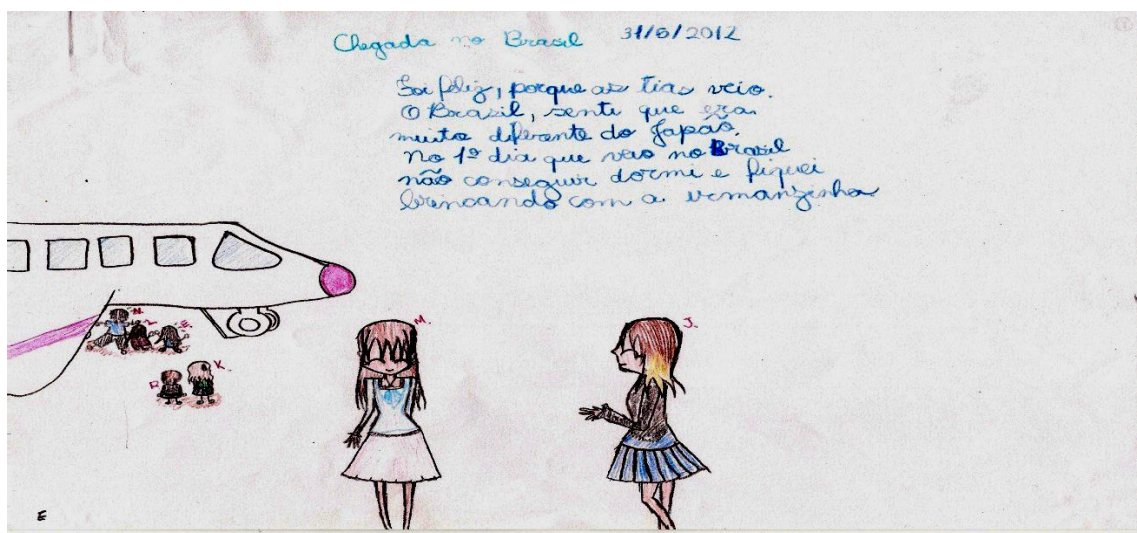 Chegada no Brasil 31/6/2012
Foi feliz, porque as tias veio.
O Brasil, senti que era
muito diferente do Japão.
No 1º dia que veio no Brasil
não conseguir dormi e fiquei
brincando com a irmanzinha
M.
J.
K.
R.
E